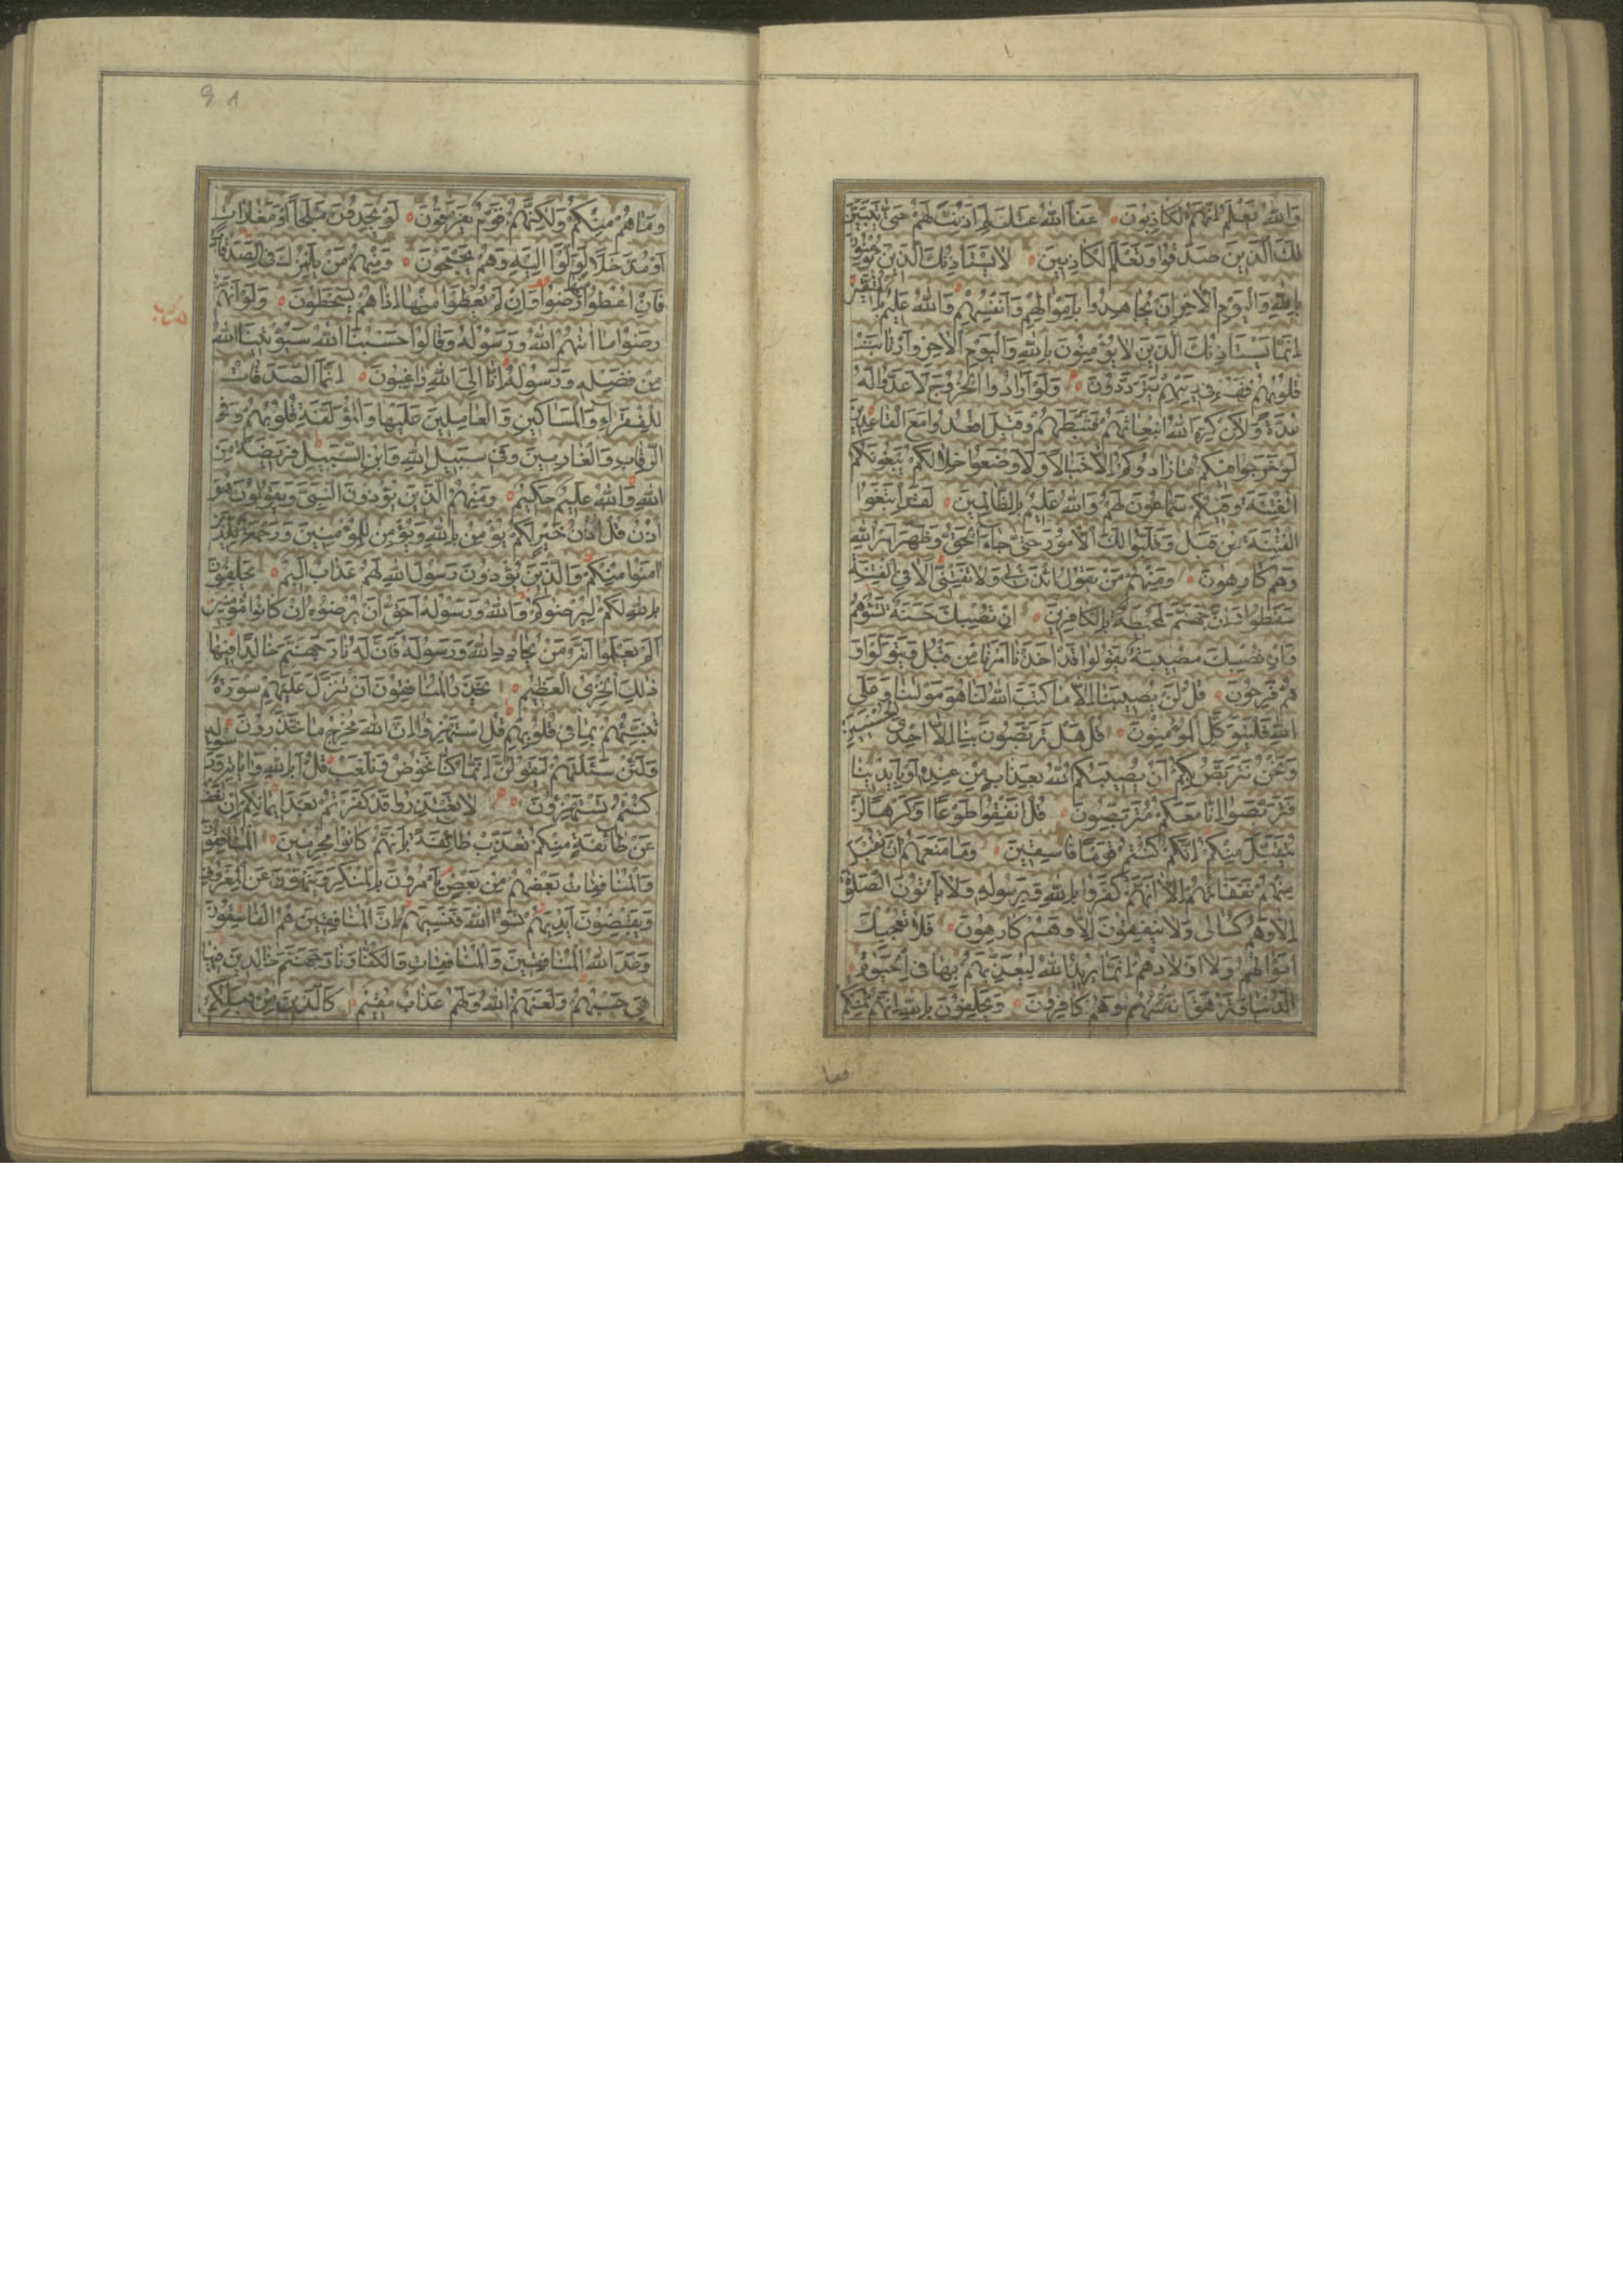 وَاللهُ يَعْلَمُ اِنَّهُمْ لَكَاذِبُونَ عَفَا اللهُ عَنْكَ لِمَ اَذِنْتَ لَهُمْ حَتّٰى يَتَبَيَّنَ
لَكَ الَّذِينَ صَدَقُوا وَتَعْلَمَ الْكَاذِبِينَ لَا يَسْتَاْذِنُكَ الَّذِينَ يُؤْمِنُونَ
بِاللهِ وَالْيَوْمِ الْاٰخِرِ اَنْ يُجَاهِدُوا بِاَمْوَالِهِمْ وَاَنْفُسِهِمْ وَاللهُ عَلِيمٌ بِالْمُتَّقِينَ
اِنَّمَا يَسْتَاْذِنُكَ الَّذِينَ لَا يُؤْمِنُونَ بِاللهِ وَالْيَوْمِ الْاٰخِرِ وَارْتَابَتْ
قُلُوبُهُمْ فَهُمْ فِى رَيْبِهِمْ يَتَرَدَّدُونَ وَلَوْ اَرَادُوا الْخُرُوجَ لَاَعَدُّوا لَهُ
عُدَّةً وَلٰكِنْ كَرِهَ اللهُ انْبِعَاثَهُمْ فَثَبَّطَهُمْ وَقِيلَ اقْعُدُوا مَعَ الْقَاعِدِينَ
لَوْ خَرَجُوا فِيكُمْ مَا زَادُوكُمْ اِلَّا خَبَالًا وَلَاَوْضَعُوا خِلَالَكُمْ يَبْغُونَكُمُ
الْفِتْنَةَ وَفِيكُمْ سَمَّاعُونَ لَهُمْ وَاللهُ عَلِيمٌ بِالظَّالِمِينَ لَقَدِ ابْتَغَوُا
الْفِتْنَةَ مِنْ قَبْلُ وَقَلَّبُوا لَكَ الْاُمُورَ حَتّٰى جَاءَ الْحَقُّ وَظَهَرَ اَمْرُ اللهِ
وَهُمْ كَارِهُونَ وَمِنْهُمْ مَنْ يَقُولُ ائْذَنْ لِى وَلَا تَفْتِنِّى اَلَا فِى الْفِتْنَةِ
سَقَطُوا وَاِنَّ جَهَنَّمَ لَمُحِيطَةٌ بِالْكَافِرِينَ اِنْ تُصِبْكَ حَسَنَةٌ تَسُؤْهُمْ
وَاِنْ تُصِبْكَ مُصِيبَةٌ يَقُولُوا قَدْ اَخَذْنَا اَمْرَنَا مِنْ قَبْلُ وَيَتَوَلَّوْا وَ
هُمْ فَرِحُونَ قُلْ لَنْ يُصِيبَنَا اِلَّا مَا كَتَبَ اللهُ لَنَا هُوَ مَوْلٰينَا وَعَلَى
اللهِ فَلْيَتَوَكَّلِ الْمُؤْمِنُونَ قُلْ هَلْ تَرَبَّصُونَ بِنَا اِلَّا اِحْدَى الْحُسْنَيَيْنِ
وَنَحْنُ نَتَرَبَّصُ بِكُمْ اَنْ يُصِيبَكُمُ اللهُ بِعَذَابٍ مِنْ عِنْدِهِ اَوْ بِاَيْدِينَا
فَتَرَبَّصُوا اِنَّا مَعَكُمْ مُتَرَبِّصُونَ قُلْ اَنْفِقُوا طَوْعًا اَوْ كَرْهًا لَنْ
يُتَقَبَّلَ مِنْكُمْ اِنَّكُمْ كُنْتُمْ قَوْمًا فَاسِقِينَ وَمَا مَنَعَهُمْ اَنْ تُقْبَلَ
مِنْهُمْ نَفَقَاتُهُمْ اِلَّا اَنَّهُمْ كَفَرُوا بِاللهِ وَبِرَسُولِهِ وَلَا يَاْتُونَ الصَّلٰوةَ
اِلَّا وَهُمْ كُسَالٰى وَلَا يُنْفِقُونَ اِلَّا وَهُمْ كَارِهُونَ فَلَا تُعْجِبْكَ
اَمْوَالُهُمْ وَلَا اَوْلَادُهُمْ اِنَّمَا يُرِيدُ اللهُ لِيُعَذِّبَهُمْ بِهَا فِى الْحَيٰوةِ
الدُّنْيَا وَتَزْهَقَ اَنْفُسُهُمْ وَهُمْ كَافِرُونَ وَيَحْلِفُونَ بِاللهِ اِنَّهُمْ لَمِنْكُمْ
وما
٩٨
وَمَا هُمْ مِنْكُمْ وَلٰكِنَّهُمْ قَوْمٌ يَفْرَقُونَ لَوْ يَجِدُونَ مَلْجَأً اَوْ مَغَارَاتٍ
اَوْ مُدَّخَلًا لَوَلَّوْا اِلَيْهِ وَهُمْ يَجْمَحُونَ وَمِنْهُمْ مَنْ يَلْمِزُكَ فِى الصَّدَقَاتِ
فَاِنْ اُعْطُوا مِنْهَا رَضُوا وَاِنْ لَمْ يُعْطَوْا مِنْهَا اِذَا هُمْ يَسْخَطُونَ وَلَوْ اَنَّهُمْ
رَضُوا مَا اٰتٰيهُمُ اللهُ وَرَسُولُهُ وَقَالُوا حَسْبُنَا اللهُ سَيُؤْتِينَا اللهُ
مِنْ فَضْلِهِ وَرَسُولُهُ اِنَّا اِلَى اللهِ رَاغِبُونَ اِنَّمَا الصَّدَقَاتُ
لِلْفُقَرَاءِ وَالْمَسَاكِينِ وَالْعَامِلِينَ عَلَيْهَا وَالْمُؤَلَّفَةِ قُلُوبُهُمْ وَفِى
الرِّقَابِ وَالْغَارِمِينَ وَفِى سَبِيلِ اللهِ وَابْنِ السَّبِيلِ فَرِيضَةً مِنَ
اللهِ وَاللهُ عَلِيمٌ حَكِيمٌ وَمِنْهُمُ الَّذِينَ يُؤْذُونَ النَّبِىَّ وَيَقُولُونَ هُوَ
اُذُنٌ قُلْ اُذُنُ خَيْرٍ لَكُمْ يُؤْمِنُ بِاللهِ وَيُؤْمِنُ لِلْمُؤْمِنِينَ وَرَحْمَةٌ لِلَّذِينَ
اٰمَنُوا مِنْكُمْ وَالَّذِينَ يُؤْذُونَ رَسُولَ اللهِ لَهُمْ عَذَابٌ اَلِيمٌ يَحْلِفُونَ
بِاللهِ لَكُمْ لِيُرْضُوكُمْ وَاللهُ وَرَسُولُهُ اَحَقُّ اَنْ يُرْضُوهُ اِنْ كَانُوا مُؤْمِنِينَ
اَلَمْ يَعْلَمُوا اَنَّهُ مَنْ يُحَادِدِ اللهَ وَرَسُولَهُ فَاَنَّ لَهُ نَارَ جَهَنَّمَ خَالِدًا فِيهَا
ذٰلِكَ الْخِزْىُ الْعَظِيمُ يَحْذَرُ الْمُنَافِقُونَ اَنْ تُنَزَّلَ عَلَيْهِمْ سُورَةٌ
تُنَبِّئُهُمْ بِمَا فِى قُلُوبِهِمْ قُلِ اسْتَهْزِؤُا اِنَّ اللهَ مُخْرِجٌ مَا تَحْذَرُونَ
وَلَئِنْ سَئَلْتَهُمْ لَيَقُولُنَّ اِنَّمَا كُنَّا نَخُوضُ وَنَلْعَبُ قُلْ اَبِاللهِ وَاٰيَاتِهِ وَرَسُولِهِ
كُنْتُمْ تَسْتَهْزِؤُنَ لَا تَعْتَذِرُوا قَدْ كَفَرْتُمْ بَعْدَ اِيمَانِكُمْ اِنْ نَعْفُ
عَنْ طَائِفَةٍ مِنْكُمْ نُعَذِّبْ طَائِفَةً بِاَنَّهُمْ كَانُوا مُجْرِمِينَ اَلْمُنَافِقُونَ
وَالْمُنَافِقَاتُ بَعْضُهُمْ مِنْ بَعْضٍ يَاْمُرُونَ بِالْمُنْكَرِ وَيَنْهَوْنَ عَنِ الْمَعْرُوفِ
وَيَقْبِضُونَ اَيْدِيَهُمْ نَسُوا اللهَ فَنَسِيَهُمْ اِنَّ الْمُنَافِقِينَ هُمُ الْفَاسِقُونَ
وَعَدَ اللهُ الْمُنَافِقِينَ وَالْمُنَافِقَاتِ وَالْكُفَّارَ نَارَ جَهَنَّمَ خَالِدِينَ فِيهَا
هِىَ حَسْبُهُمْ وَلَعَنَهُمُ اللهُ وَلَهُمْ عَذَابٌ مُقِيمٌ كَالَّذِينَ مِنْ قَبْلِكُمْ